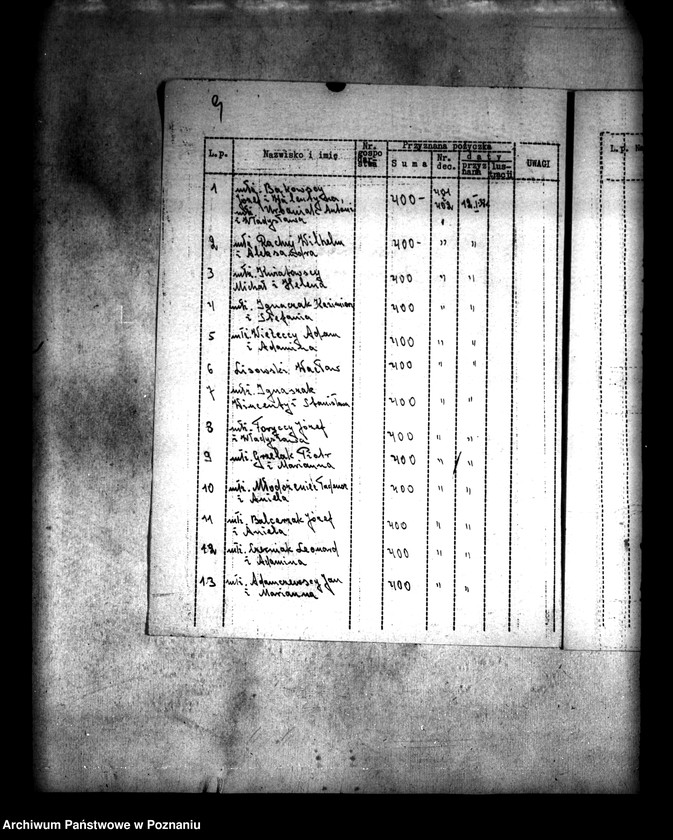 9
L.p. Nazwisko i imię Nr. gospo darstwa Przyznana pożyczka UWAGI
Suma Nr. dec. daty
przyz nana lus tracji
1 młż. Bąkowscy
Józef i Walentyna,
młż. Urbaniak Antoni
i Władysława 400- 401 402
2 młż. Rachuj Wilhelm
i Aleksandra 400- " "
3 młż. Kwiatowscy
Michał i Helena 400 " "
4 młż. Ignaczak Kazimierz
i Stefania 400 " "
5 młż. Adam
i Adamina 400 " "
6 Lisowski Wacław 400 " "
7 młż. Ignaszak
Wincenty i Stanisława 400 " "
8 młż. Józef
i Władysława 400 " "
9 młż. Grzelak Piotr
i Marianna 400 " "
10 młż. Młodożeniec
i Aniela 400 " "
11 młż. Balcerzak Józef
i Aniela 400 " "
12 młż. Leonard
i Adamina 400 " "
13 młż. Adamczewscy Jan
i Marianna 400 " "
L.p.
Archiwum Państwowe w Poznaniu